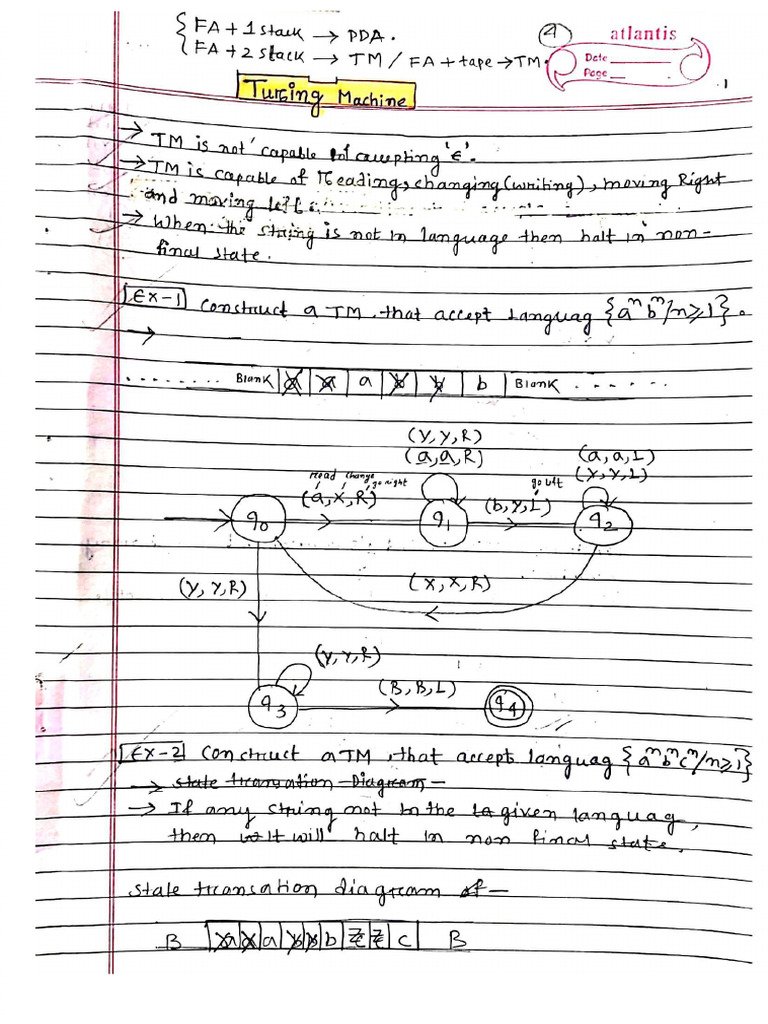 FA + 1 stack → PDA.
FA + 2 stack → TM / FA + tape → TM.
4
atlantis
Date
Page
1
Turing Machine
→ TM is not capable of accepting 'ϵ'.
→ TM is capable of Reading, changing (writing), moving Right
and moving left.
→ When the string is not in language then halt in non-
final state.
Ex-1 Construct a TM that accept Languag {aⁿbⁿ/n≥1}.
→
........ Blank a a a b b b Blank ......
(Y, Y, R)
(a, a, R)
(a, a, L)
(Y, Y, L)
read change go right
go left
(a, X, R)
(b, Y, L)
q0 q1 q2
(Y, Y, R) (X, X, R)
(Y, Y, R)
(B, B, L)
q3 q4
Ex-2 Construct a TM, that accept languag {aⁿbⁿcⁿ/n≥1}
→ state transation Diagram
→ If any string not in the given languag,
then it will halt in non final state.
state transation diagram of —
B a a a b b b c c c B